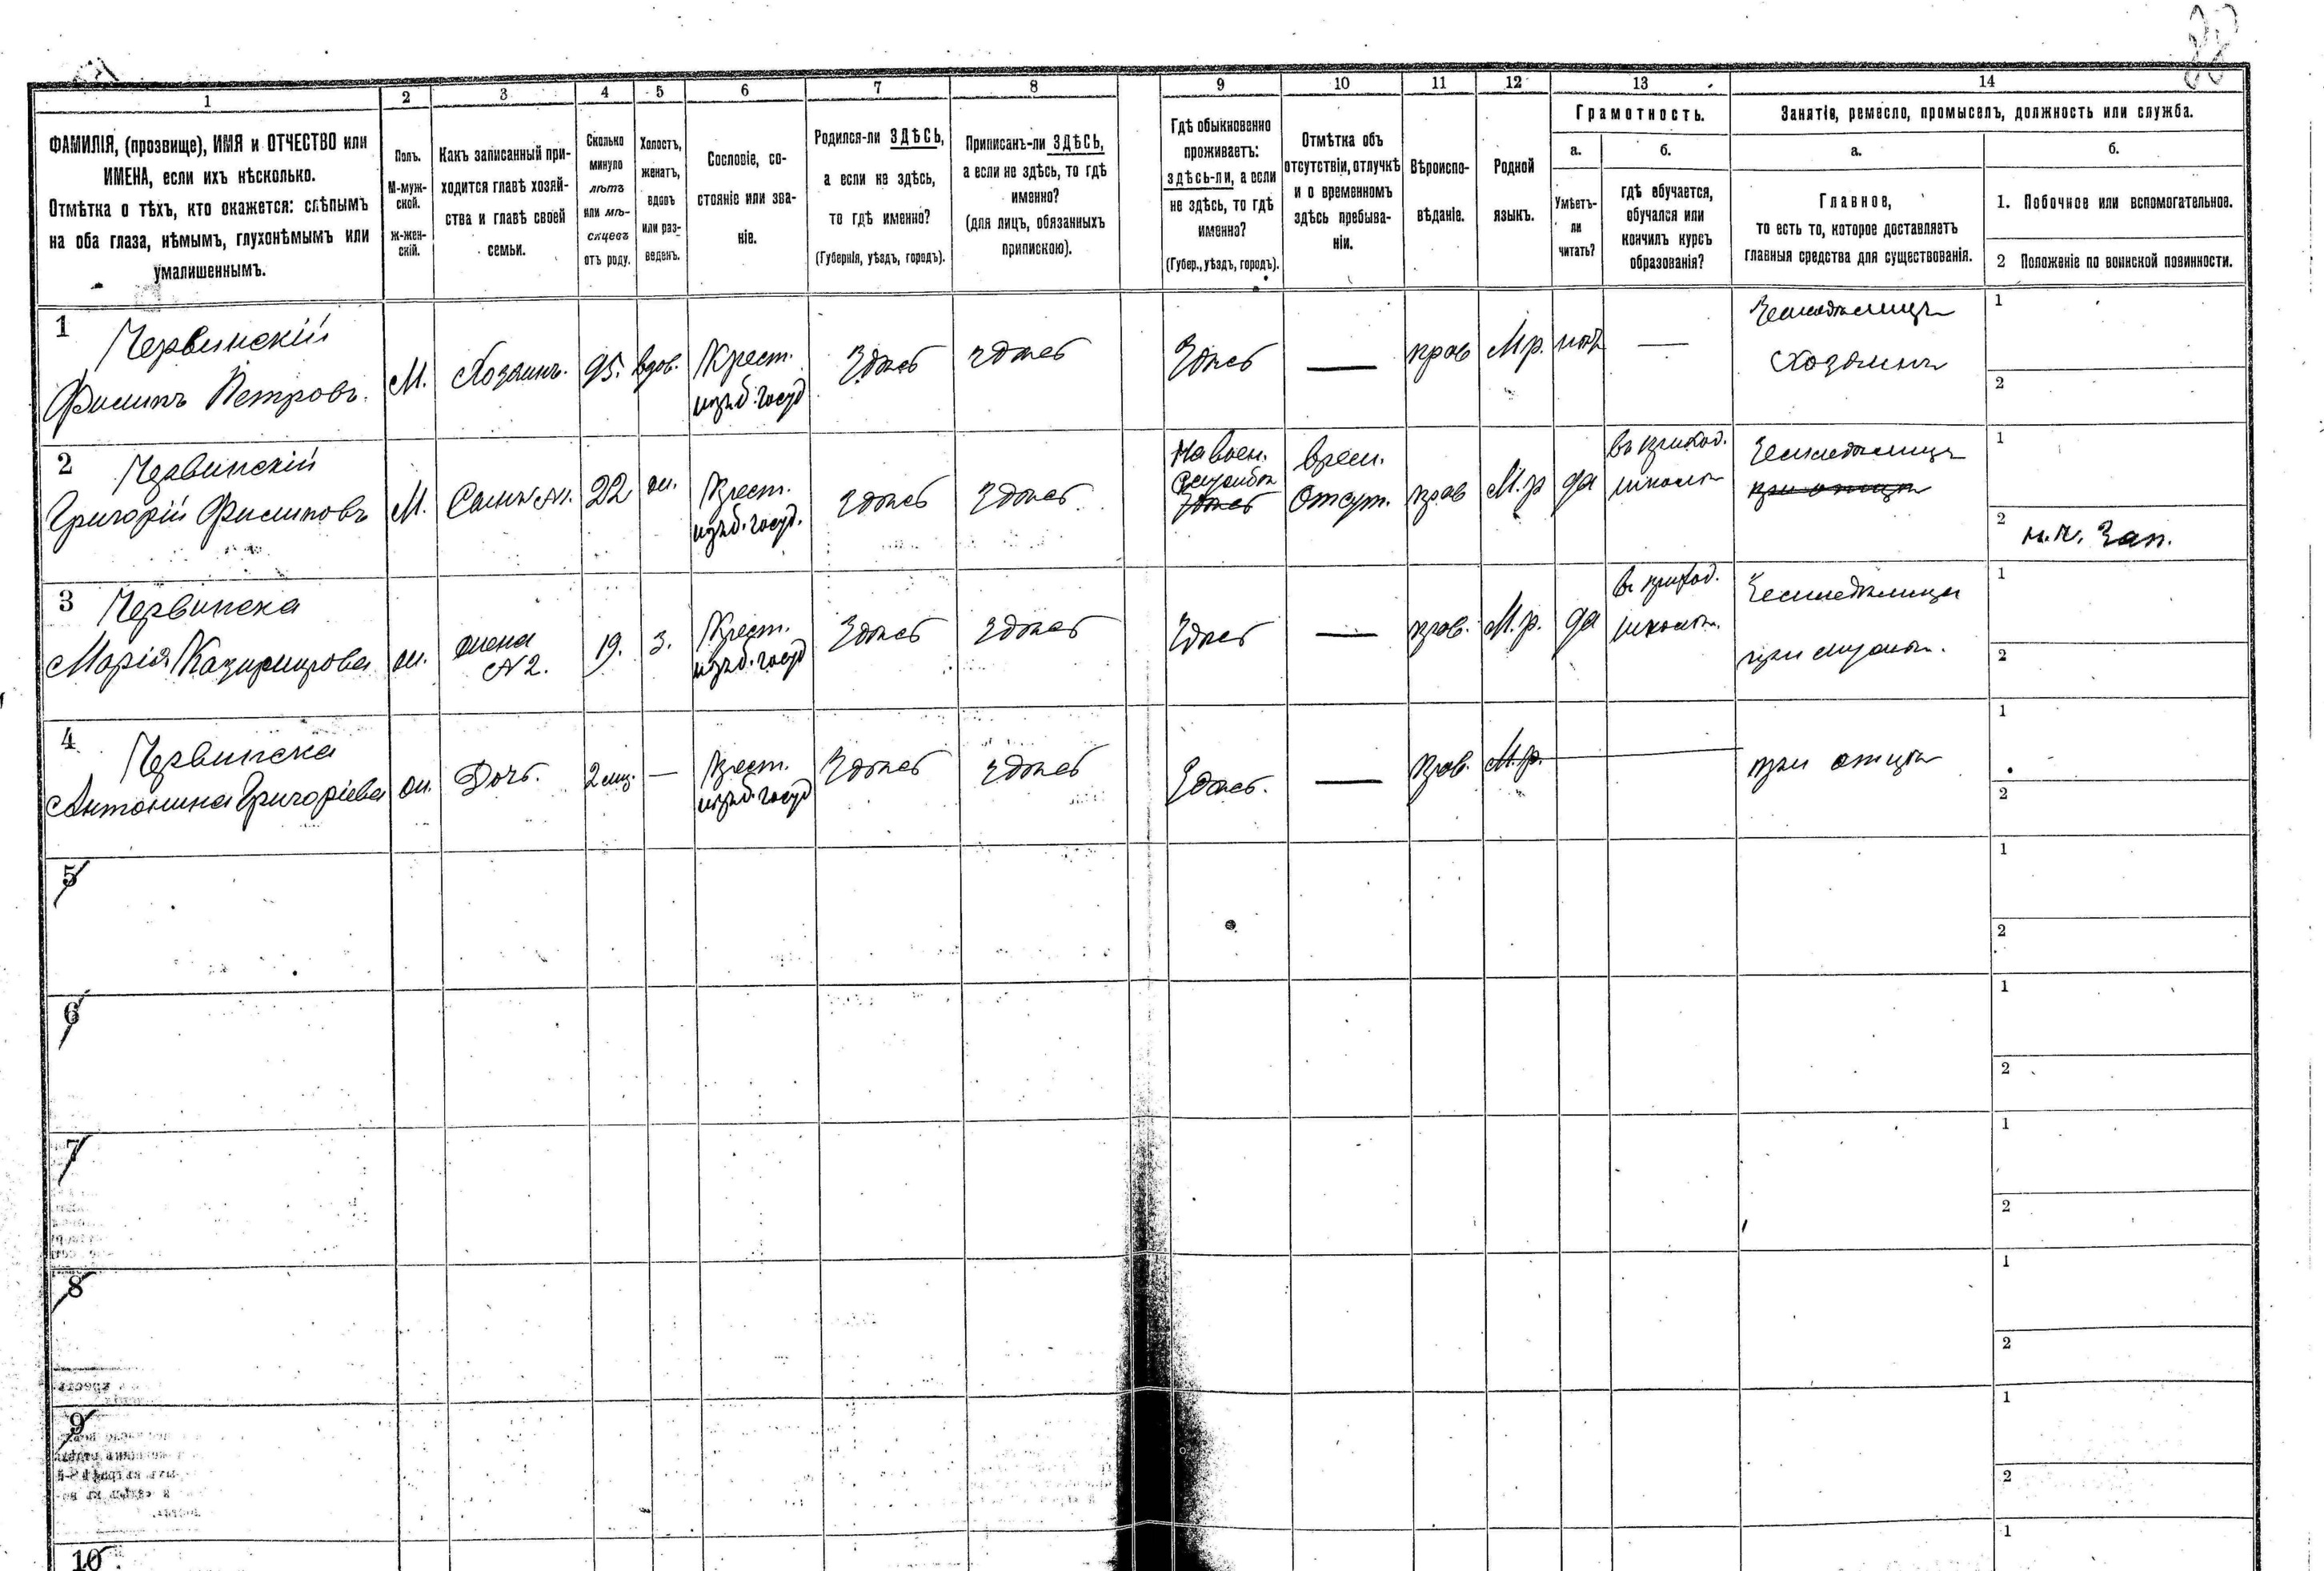 1 2 3 4 5 6 7 8 9 10 11 12 13 14
ФАМИЛІЯ, (прозвище), ИМЯ и ОТЧЕСТВО или
ИМЕНА, если ихъ нѣсколько.
Отмѣтка о тѣхъ, кто окажется: слѣпымъ
на оба глаза, нѣмымъ, глухонѣмымъ или
умалишеннымъ.
Полъ.
М-муж-
ской.
Ж-жен-
скій.
Какъ записанный при-
ходится главѣ хозяй-
ства и главѣ своей
семьи.
Сколько
минуло
лѣтъ
или мѣ-
сяцевъ
отъ роду.
Холостъ,
женатъ,
вдовъ
или раз-
веденъ.
Сословіе, со-
стояніе или зва-
ніе.
Родился-ли ЗДѢСЬ,
а если не здѣсь,
то гдѣ именно?
(Губернія, уѣздъ, городъ).
Приписанъ-ли ЗДѢСЬ,
а если не здѣсь, то гдѣ
именно?
(для лицъ, обязанныхъ
припискою).
Гдѣ обыкновенно
проживаетъ:
здѣсь-ли, а если
не здѣсь, то гдѣ
именно?
(Губер., уѣздъ, городъ).
Отмѣтка объ
отсутствіи, отлучкѣ
и о временномъ
здѣсь пребыва-
ніи.
Вѣроиспо-
вѣданіе.
Родной
языкъ.
Грамотность.
а.
Умѣетъ-
ли
читать?
б.
гдѣ обучается,
обучался или
кончилъ курсъ
образованія?
Занятіе, ремесло, промыселъ, должность или служба.
а.
Главное,
то есть то, которое доставляетъ
главныя средства для существованія.
б.
1. Побочное или вспомогательное.
2 Положеніе по воинской повинности.
1 Червинскій
Филипъ Петровъ.
М.
Хозяинъ.
95.
вдов.
Крест.
изъ б. госуд
Здѣсь
здѣсь
Здѣсь
—
прав
Мр.
нѣтъ
—
Земледѣлецъ
Хозяинъ
1
2
2 Червинскій
Григорій Филиповъ
М.
Сынъ №1.
22
ж.
Крест.
изъ б. госуд.
Здѣсь
Здѣсь
На воен.
службѣ
Здѣсь
врем.
отсут.
прав
М.р
да
въ приход.
школѣ
Земледѣлецъ
при отцѣ
1
2 н.ч. Зап.
3 Червинска
Марія Казимирова
ж.
жена
№2.
19.
з.
Крест.
изъ б. госуд
Здѣсь
Здѣсь
Здѣсь
—
прав.
М.р.
да
въ приход.
школѣ.
Земледѣлица
при мужѣ.
1
2
4 Червинска
Антонина Григоріева
ж.
Дочь.
2 мц.
—
Крест.
изъ б. госуд
Здѣсь
здѣсь
Здѣсь.
—
прав.
М.р.
—
при отцѣ
1
2
5
1
2
6
1
2
7
1
2
8
1
2
9
1
2
10
1